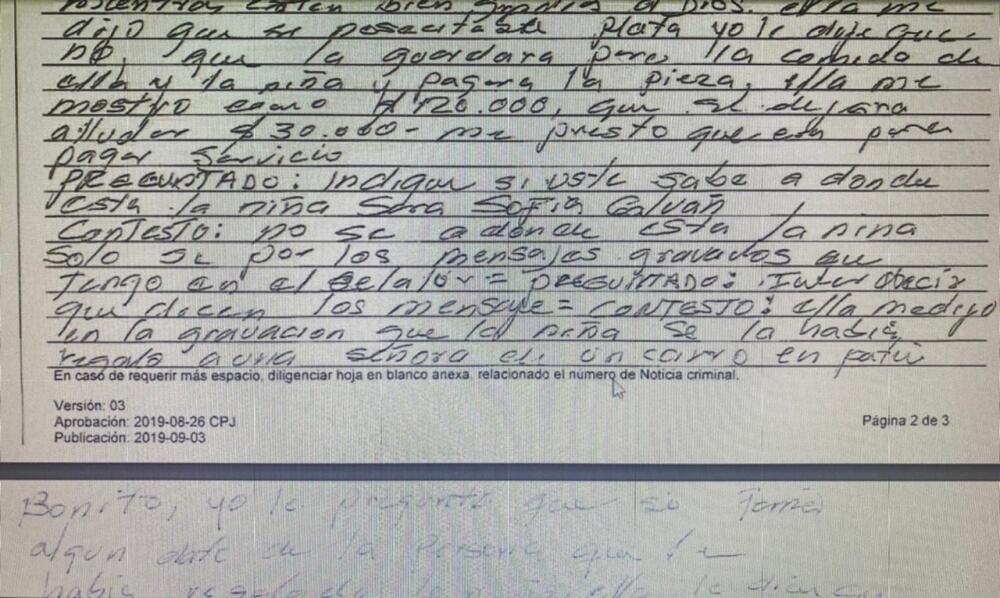 bien gracias a Dios. ella me
dijo que si nesecitaba plata yo le dije que
no, que la guardara para la comida de
ella y la niña y pagara la pieza, ella me
mostro como $ 120.000, que si dejara
alludar $ 30.000- me presto que eran para
pagar Servicio
PREGUNTADO: Indique si uste sabe a donde
esta la niña Sara Sofia Galvan
Contesto: no se adonde esta la nina
Solo se por los mensajes gravados que
Tengo en el selalor= PREGUNTADO: decir
que dicen los mensaje= CONTESTO: ella medijo
en la gravacion que la niña se la habia
regalo a una señora en un carro en patio
En caso de requerir más espacio, diligenciar hoja en blanco anexa, relacionado el número de Noticia criminal.
Versión: 03
Aprobación: 2019-08-26 CPJ
Publicación: 2019-09-03
Página 2 de 3
Bonito, yo le pregunte que si Tomó
algun dato de la Persona que le
habia regalado la niña, ella le